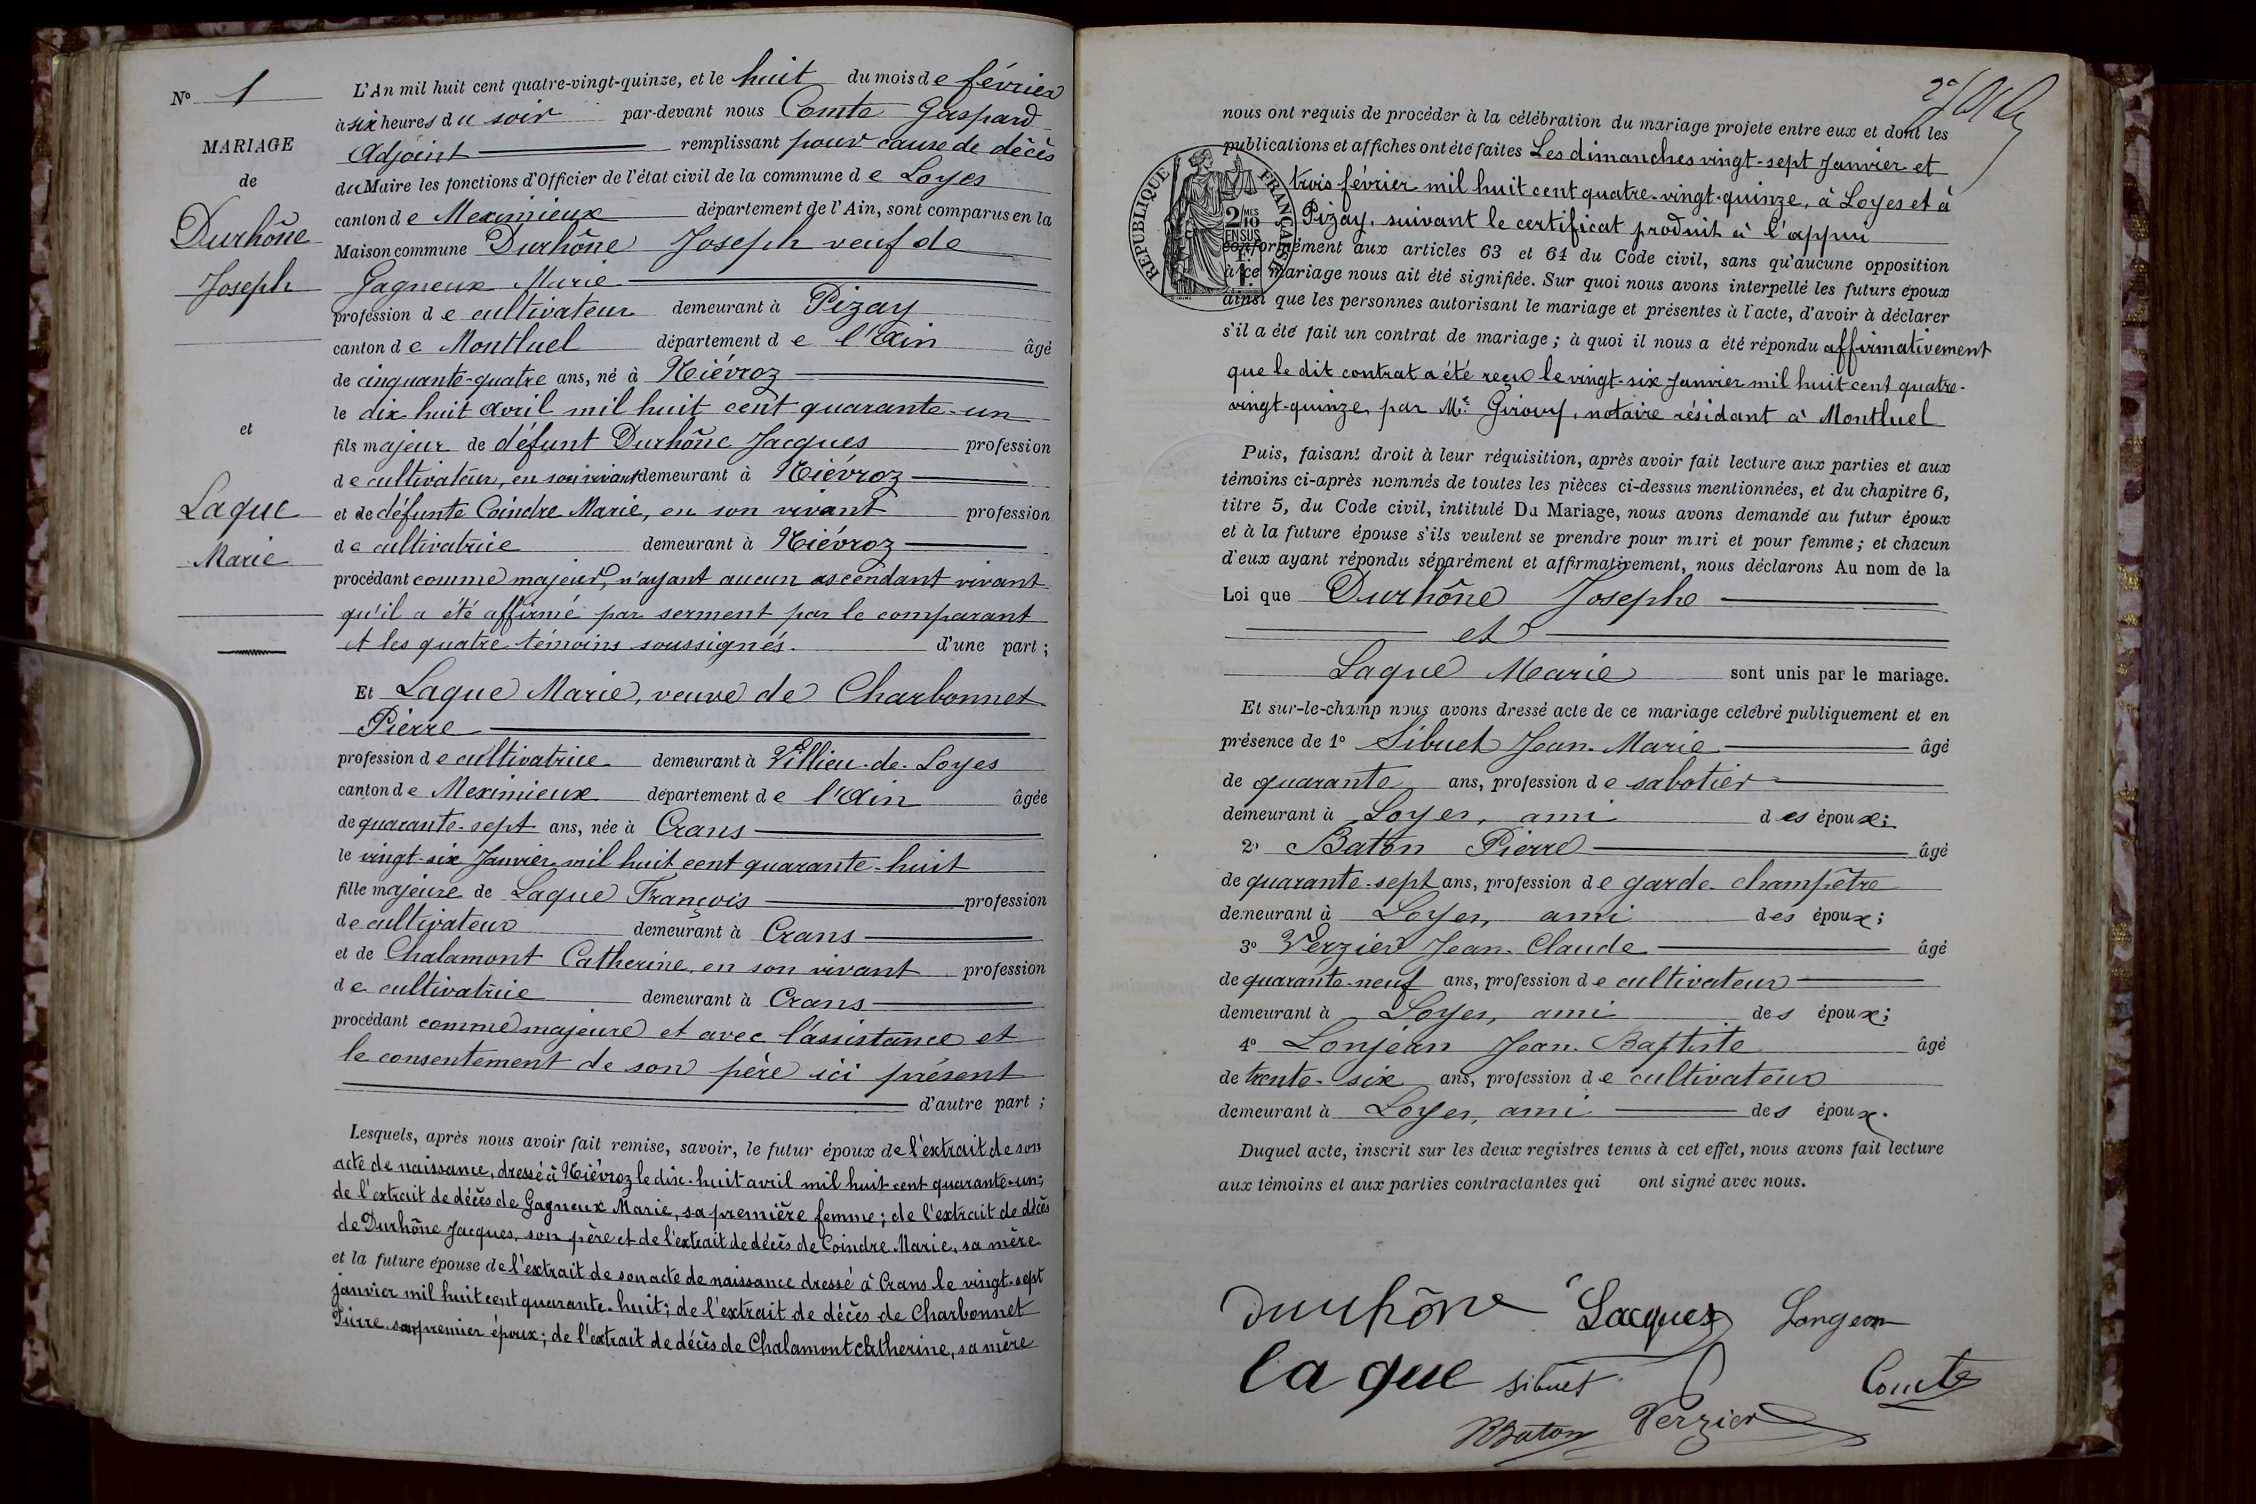 N° 1
MARIAGE
de
Durhône
Joseph
et
Laque
Marie
L'An mil huit cent quatre-vingt-quinze, et le huit du mois de février
à six heures du soir par-devant nous Comte Gaspard
Adjoint remplissant pour cause de décès
du Maire les fonctions d'Officier de l'état civil de la commune de Loyes
canton de Meximieux département de l'Ain, sont comparus en la
Maison commune Durhône Joseph veuf de
Gagneux Marie
profession de cultivateur demeurant à Pizay
canton de Montluel département de l'Ain âgé
de cinquante-quatre ans, né à Niévroz
le dix huit avril mil huit cent quarante-un
fils majeur de défunt Durhône Jacques profession
de cultivateur, en son vivant demeurant à Niévroz
et de défunte Coindre Marie, en son vivant profession
de cultivatrice demeurant à Niévroz
procédant comme majeur, n'ayant aucun ascendant vivant
qu'il a été affirmé par serment par le comparant
et les quatre témoins soussignés. d'une part ;
Et Laque Marie, veuve de Charbonnet
Pierre
profession de cultivatrice demeurant à Villieu-de-Loyes
canton de Meximieux département de l'Ain âgée
de quarante-sept ans, née à Crans
le vingt-six Janvier mil huit cent quarante-huit
fille majeure de Laque François profession
de cultivateur demeurant à Crans
et de Chalamont Catherine, en son vivant profession
de cultivatrice demeurant à Crans
procédant comme majeure et avec l'assistance et
le consentement de son père ici présent
d'autre part ;
Lesquels, après nous avoir fait remise, savoir, le futur époux de l'extrait de son
acte de naissance, dressé à Niévroz le dix-huit avril mil huit cent quarante-un;
de l'extrait de décès de Gagneux Marie, sa première femme; de l'extrait de décès
de Durhône Jacques, son père et de l'extrait de décès de Coindre Marie, sa mère
et la future épouse de l'extrait de son acte de naissance dressé à Crans le vingt-sept
janvier mil huit cent quarante-huit; de l'extrait de décès de Charbonnet
Pierre son premier époux; de l'extrait de décès de Chalamont Catherine, sa mère
nous ont requis de procéder à la célébration du mariage projeté entre eux et dont les
publications et affiches ont été faites Les dimanches vingt-sept Janvier et
trois février mil huit cent quatre-vingt-quinze, à Loyes et à
Pizay, suivant le certificat produit à l'appui
conformément aux articles 63 et 64 du Code civil, sans qu'aucune opposition
à ce mariage nous ait été signifiée. Sur quoi nous avons interpellé les futurs époux
ainsi que les personnes autorisant le mariage et présentes à l'acte, d'avoir à déclarer
s'il a été fait un contrat de mariage ; à quoi il nous a été répondu affirmativement
que le dit contrat a été reçu le vingt-six Janvier mil huit cent quatre-
vingt-quinze, par Me Girouy, notaire résidant à Montluel
RÉPUBLIQUE FRANÇAISE
2/10 MES
EN SUS
Puis, faisant droit à leur réquisition, après avoir fait lecture aux parties et aux
témoins ci-après nommés de toutes les pièces ci-dessus mentionnées, et du chapitre 6,
titre 5, du Code civil, intitulé Du Mariage, nous avons demandé au futur époux
et à la future épouse s'ils veulent se prendre pour mari et pour femme ; et chacun
d'eux ayant répondu séparément et affirmativement, nous déclarons Au nom de la
Loi que Durhône Joseph
et
Laque Marie sont unis par le mariage.
Et sur-le-champ nous avons dressé acte de ce mariage célébré publiquement et en
présence de 1° Sibuet Jean-Marie âgé
de quarante ans, profession de sabotier
demeurant à Loyes, ami des époux;
2° Baton Pierre âgé
de quarante-sept ans, profession de garde-champêtre
demeurant à Loyes, ami des époux;
3° Verzier Jean-Claude âgé
de quarante-neuf ans, profession de cultivateur
demeurant à Loyes, ami des époux;
4° Lonjean Jean-Baptiste âgé
de trente-six ans, profession de cultivateur
demeurant à Loyes, ami des époux.
Duquel acte, inscrit sur les deux registres tenus à cet effet, nous avons fait lecture
aux témoins et aux parties contractantes qui ont signé avec nous.
Durhône Lacques Longeon
la que Sibuet Comte
Baton Verzier